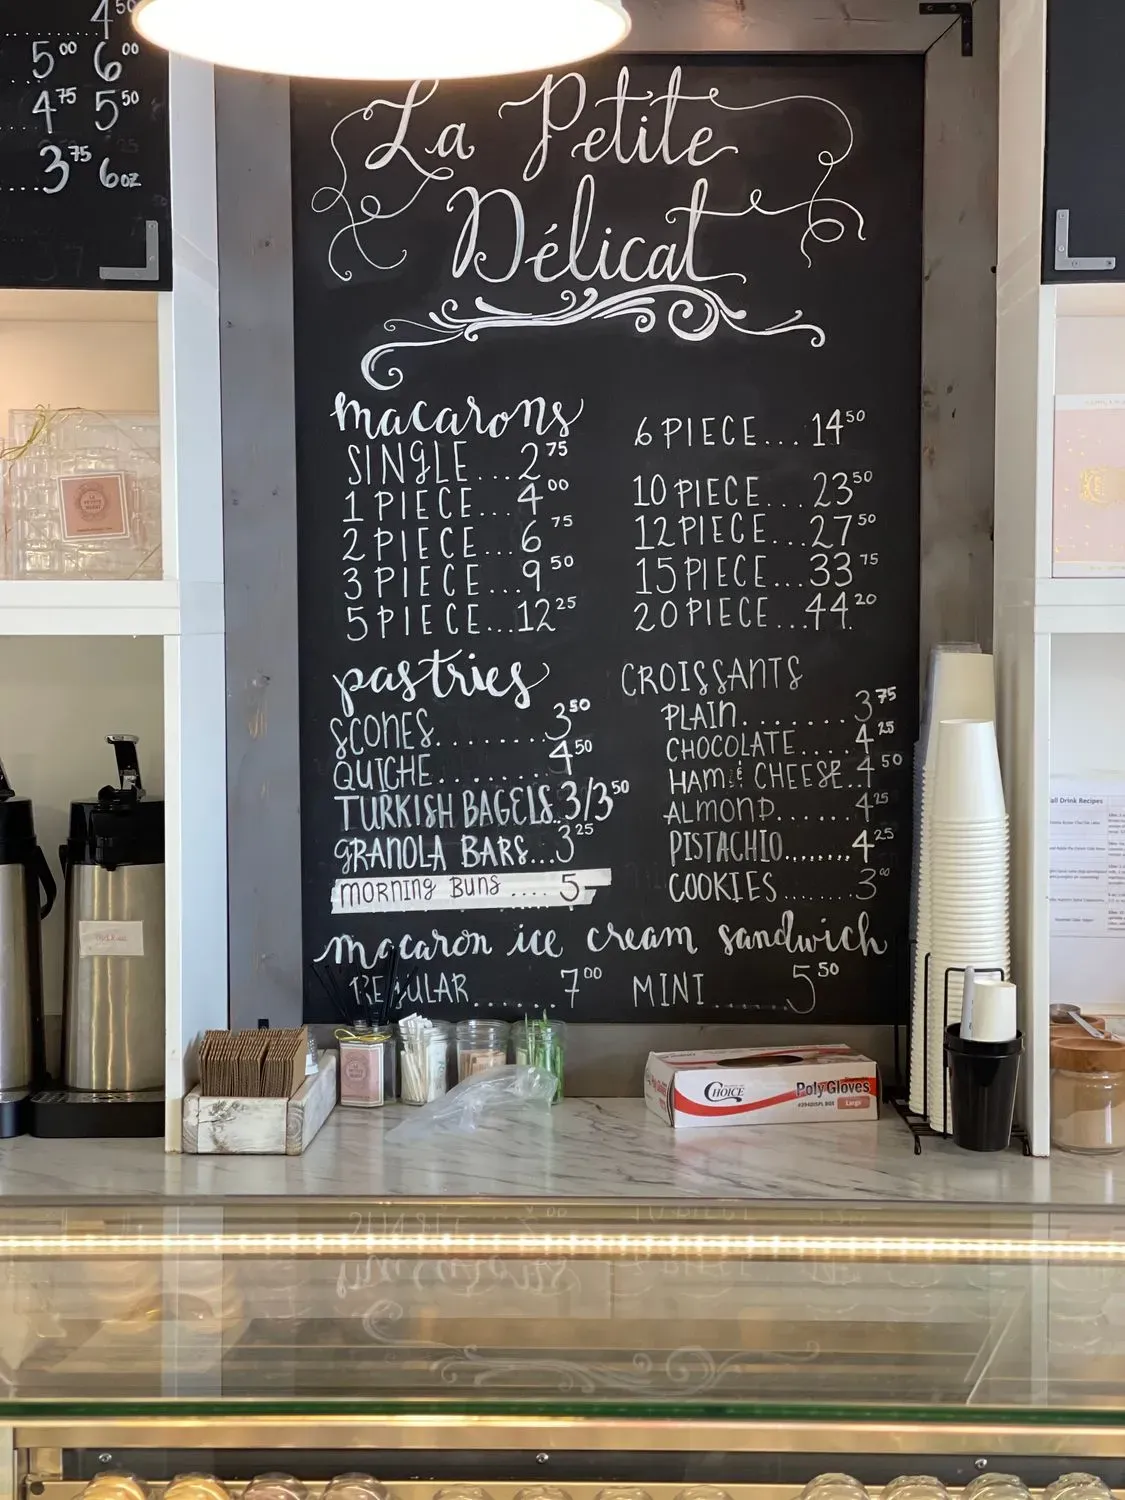 4⁵⁰
5⁰⁰ 6⁰⁰
4⁷⁵ 5⁵⁰
3⁷⁵ 6oz
La Petite
Délicat
macarons
SINGLE...2⁷⁵
1 PIECE...4⁰⁰
2 PIECE...6⁷⁵
3 PIECE...9⁵⁰
5 PIECE...12²⁵
6 PIECE...14⁵⁰
10 PIECE...23⁵⁰
12 PIECE...27⁵⁰
15 PIECE...33⁷⁵
20 PIECE...44²⁰
pastries
SCONES........3⁵⁰
QUICHE........4⁵⁰
TURKISH BAGELS..3/3⁵⁰
GRANOLA BARS...3²⁵
MORNING BUNS .... 5-
CROISSANTS
PLAIN.......3⁷⁵
CHOCOLATE....4²⁵
HAM & CHEESE..4⁵⁰
ALMOND......4²⁵
PISTACHIO.......4²⁵
COOKIES.......3⁰⁰
macaron ice cream sandwich
REGULAR......7⁰⁰ MINI......5⁵⁰
all Drink Recipes
CHOICE
Poly Gloves
Large